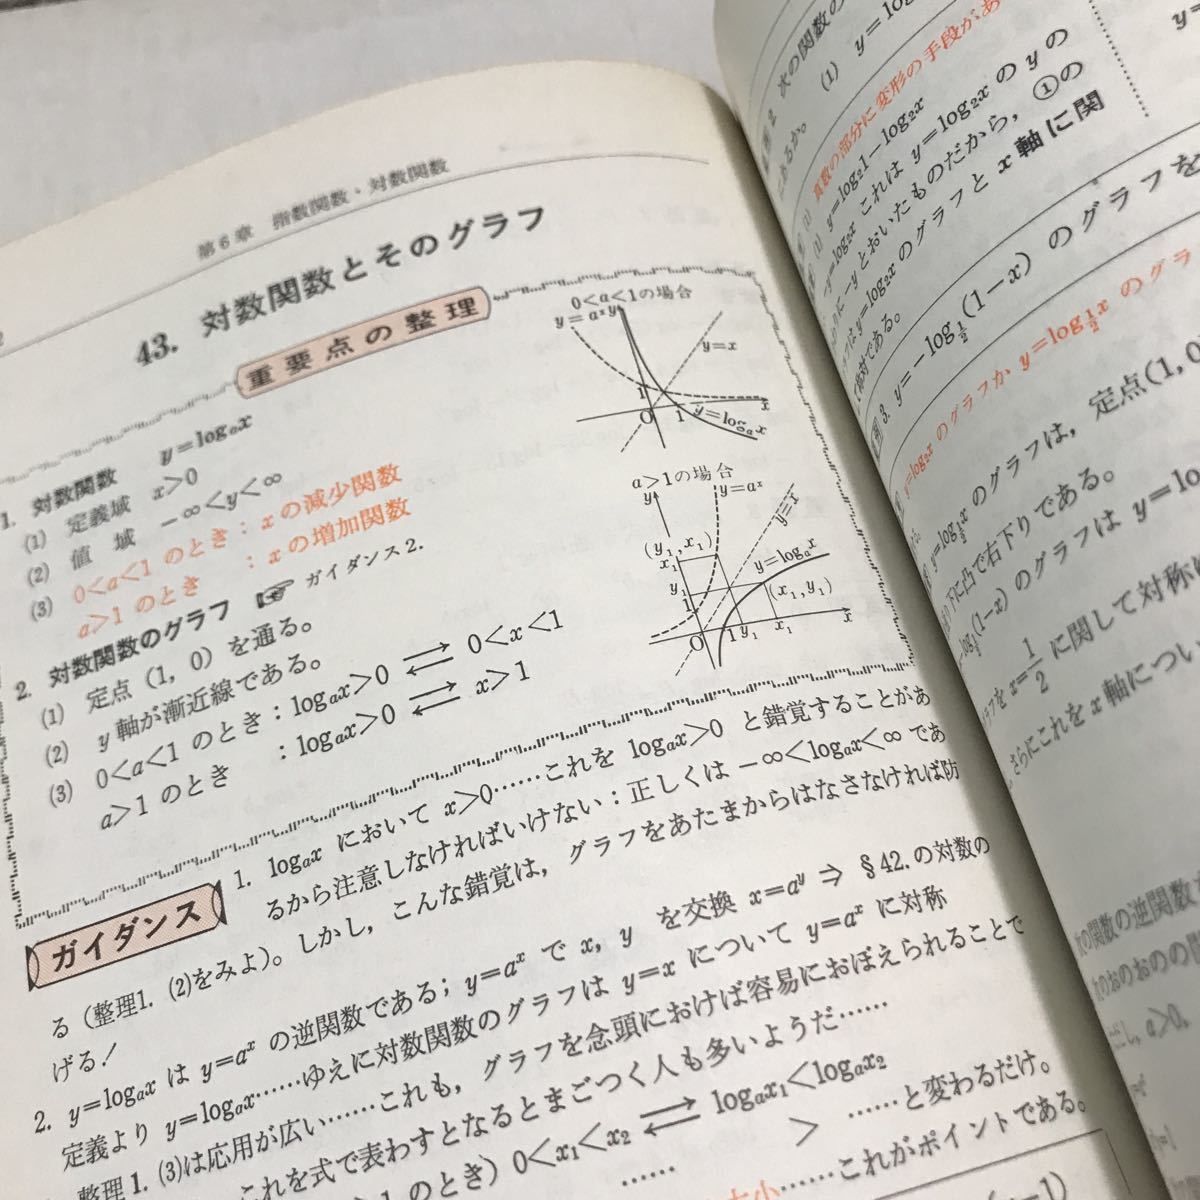 第6章 指数関数・対数関数
43. 対数関数とそのグラフ
重要点の整理
1. 対数関数 y=logₐx
(1) 定義域 x>0
(2) 値域 −∞<y<∞
(3) 0<a<1 のとき：xの減少関数
a>1 のとき ：xの増加関数
2. 対数関数のグラフ ☞ ガイダンス2.
(1) 定点 (1, 0) を通る。
(2) y軸が漸近線である。
(3) 0<a<1 のとき：logₐx>0 ⇄ 0<x<1
a>1 のとき ：logₐx>0 ⇄ x>1
0<a<1の場合
y=aˣ y
y=x
1
O 1 x
y=logₐx
a>1の場合
y y=aˣ
y=x
(y₁, x₁)
x₁
y=logₐx
y₁
(x₁, y₁)
1
O 1 y₁ x₁ x
ガイダンス
1. logₐx において x>0……これを logₐx>0 と錯覚することがあ
るから注意しなければいけない：正しくは −∞<logₐx<∞ であ
る (整理1. (2)をみよ)。しかし，こんな錯覚は，グラフをあたまからはなさなければ防
げる！
2. y=logₐx は y=aˣ の逆関数である；y=aˣ で x, y を交換 x=aʸ ⇒ §42.の対数の
定義より y=logₐx……ゆえに対数関数のグラフは y=x について y=aˣ に対称
整理1. (3)は応用が広い……これも，グラフを念頭におけば容易におぼえられることで
これを式で表わすとなるとまごつく人も多いようだ……
1 のとき) 0<x₁<x₂ ⇄ logₐx₁<logₐx₂
…… > ……と変わるだけ。
大小……これがポイントである。
例 2. 次の関数の
にあるか。
(1) y=log
真数の部分に変形の手段があ
(1) y=log₂1−log₂x
y=log₂x これは y=log₂x の y の
かわりに −y とおいたものだから，①の
フは y=log₂x のグラフと x 軸に関
して対称である。
例 3. y=−log½(1−x) のグラフを
y=log₂x のグラフか y=log½x のグラ
y=log½x のグラフは，定点(1, 0
り下に凸で右下りである。
−log½(1−x) のグラフは y=lo
グラフを x=1/2 に関して対称
，さらにこれを x 軸につい
次の関数の逆関数
次のおのおのの関
ただし，a>0,